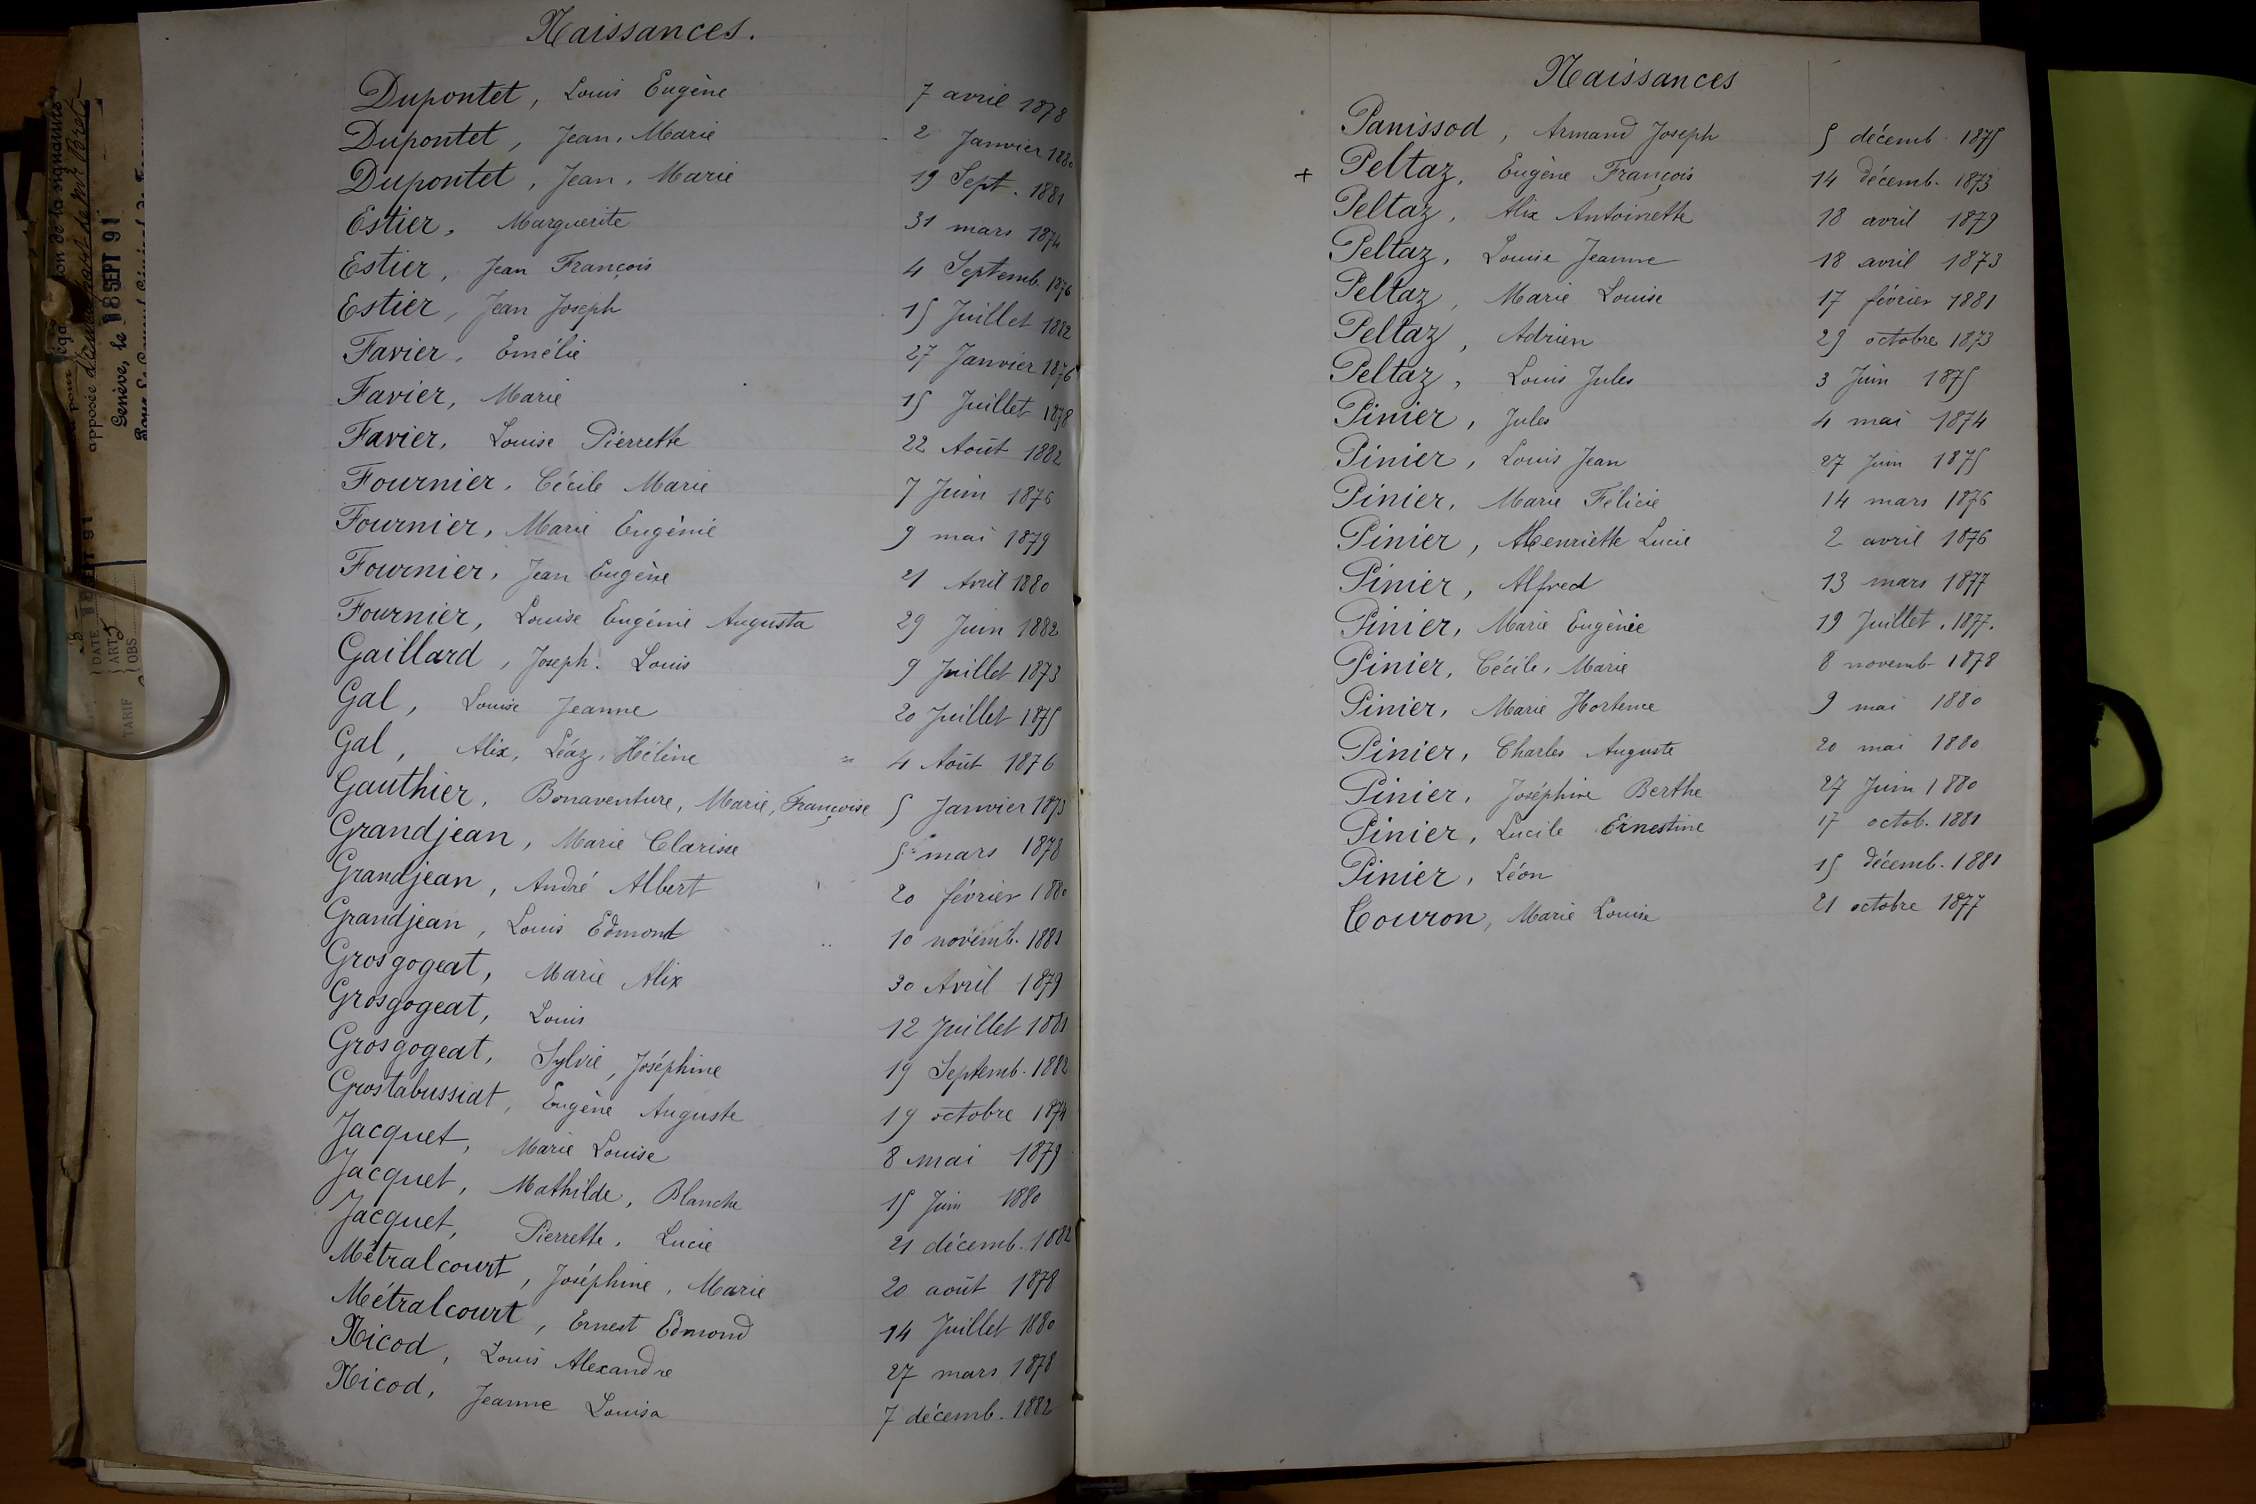 Naissances.
Dupontet, Louis Eugène 7 avril 1878
Dupontet, Jean, Marie 2 Janvier 1880
Dupontet, Jean, Marie 19 Sept. 1881
Estier, Marguerite 31 mars 1874
Estier, Jean François 4 Septemb. 1876
Estier, Jean Joseph 15 Juillet 1882
Favier, Emélie 27 Janvier 1876
Favier, Marie 15 Juillet 1878
Favier, Louise Pierrette 22 Août 1882
Fournier, Cécile Marie 7 Juin 1876
Fournier, Marie Eugénie 9 mai 1879
Fournier, Jean Eugène 21 Avril 1880
Fournier, Louise Eugénie Augusta 29 Juin 1882
Gaillard, Joseph. Louis 9 Juillet 1873
Gal, Louise Jeanne 20 Juillet 1875
Gal, Alix, Léaz, Hélène 4 Août 1876
Gauthier, Bonaventure, Marie, Françoise 5 Janvier 1873
Grandjean, Marie Clarisse 5 mars 1878
Grandjean, André Albert 20 février 1880
Grandjean, Louis Edmond 10 novemb. 1881
Grosgogeat, Marie Alix 30 Avril 1879
Grosgogeat, Louis 12 Juillet 1881
Grosgogeat, Sylvie, Joséphine 19 Septemb. 1882
Grostabussiat, Eugène Auguste 19 octobre 1874
Jacquet, Marie Louise 8 mai 1879
Jacquet, Mathilde, Blanche 15 Juin 1880
Jacquet, Pierrette, Lucie 21 décemb. 1882
Métralcourt, Joséphine, Marie 20 août 1878
Métralcourt, Ernest Edmond 14 Juillet 1880
Nicod, Louis Alexandre 27 mars 1878
Nicod, Jeanne Louisa 7 décemb. 1882
Naissances
Panissod, Armand Joseph 5 décemb. 1875
+ Peltaz, Eugène François 14 décemb. 1873
Peltaz, Alix Antoinette 18 avril 1879
Peltaz, Louise Jeanne 18 avril 1873
Peltaz, Marie Louise 17 février 1881
Peltaz, Adrien 29 octobre 1873
Peltaz, Louis Jules 3 Juin 1875
Pinier, Jules 4 mai 1874
Pinier, Louis Jean 27 Juin 1875
Pinier, Marie Félicie 14 mars 1876
Pinier, Henriette Lucie 2 avril 1876
Pinier, Alfred 13 mars 1877
Pinier, Marie Eugénie 19 Juillet. 1877.
Pinier, Cécile, Marie 8 novemb 1878
Pinier, Marie Hortence 9 mai 1880
Pinier, Charles Auguste 20 mai 1880
Pinier, Joséphine Berthe 27 Juin 1880
Pinier, Lucile Ernestine 17 octob. 1881
Pinier, Léon 15 décemb. 1881
Couron, Marie Louise 21 octobre 1877
apposée
Genève, le 18 SEPT 91
DATE
ART 5
OBS
TARIF